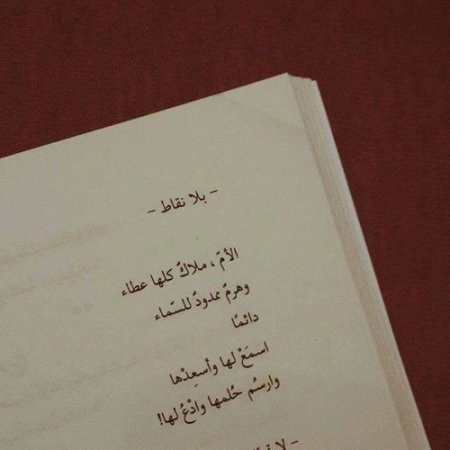 - بلا نقاط -
الأمّ ، ملاكٌ كلها عطاء
وهرمٌ ممدودٌ للسّماء
دائمًا
اسمَعْ لها وأسعِدْها
وارسُم حُلمها وادْعُ لها!